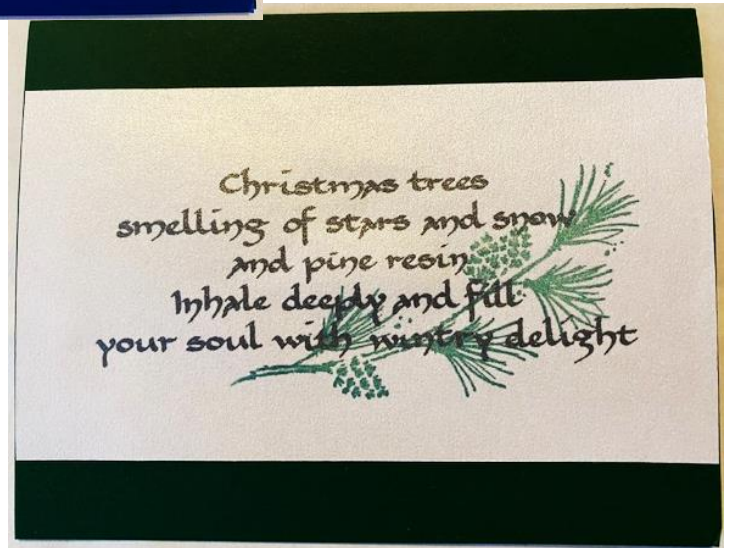 Christmas trees
smelling of stars and snow
and pine resin
Inhale deeply and fill
your soul with wintry delight